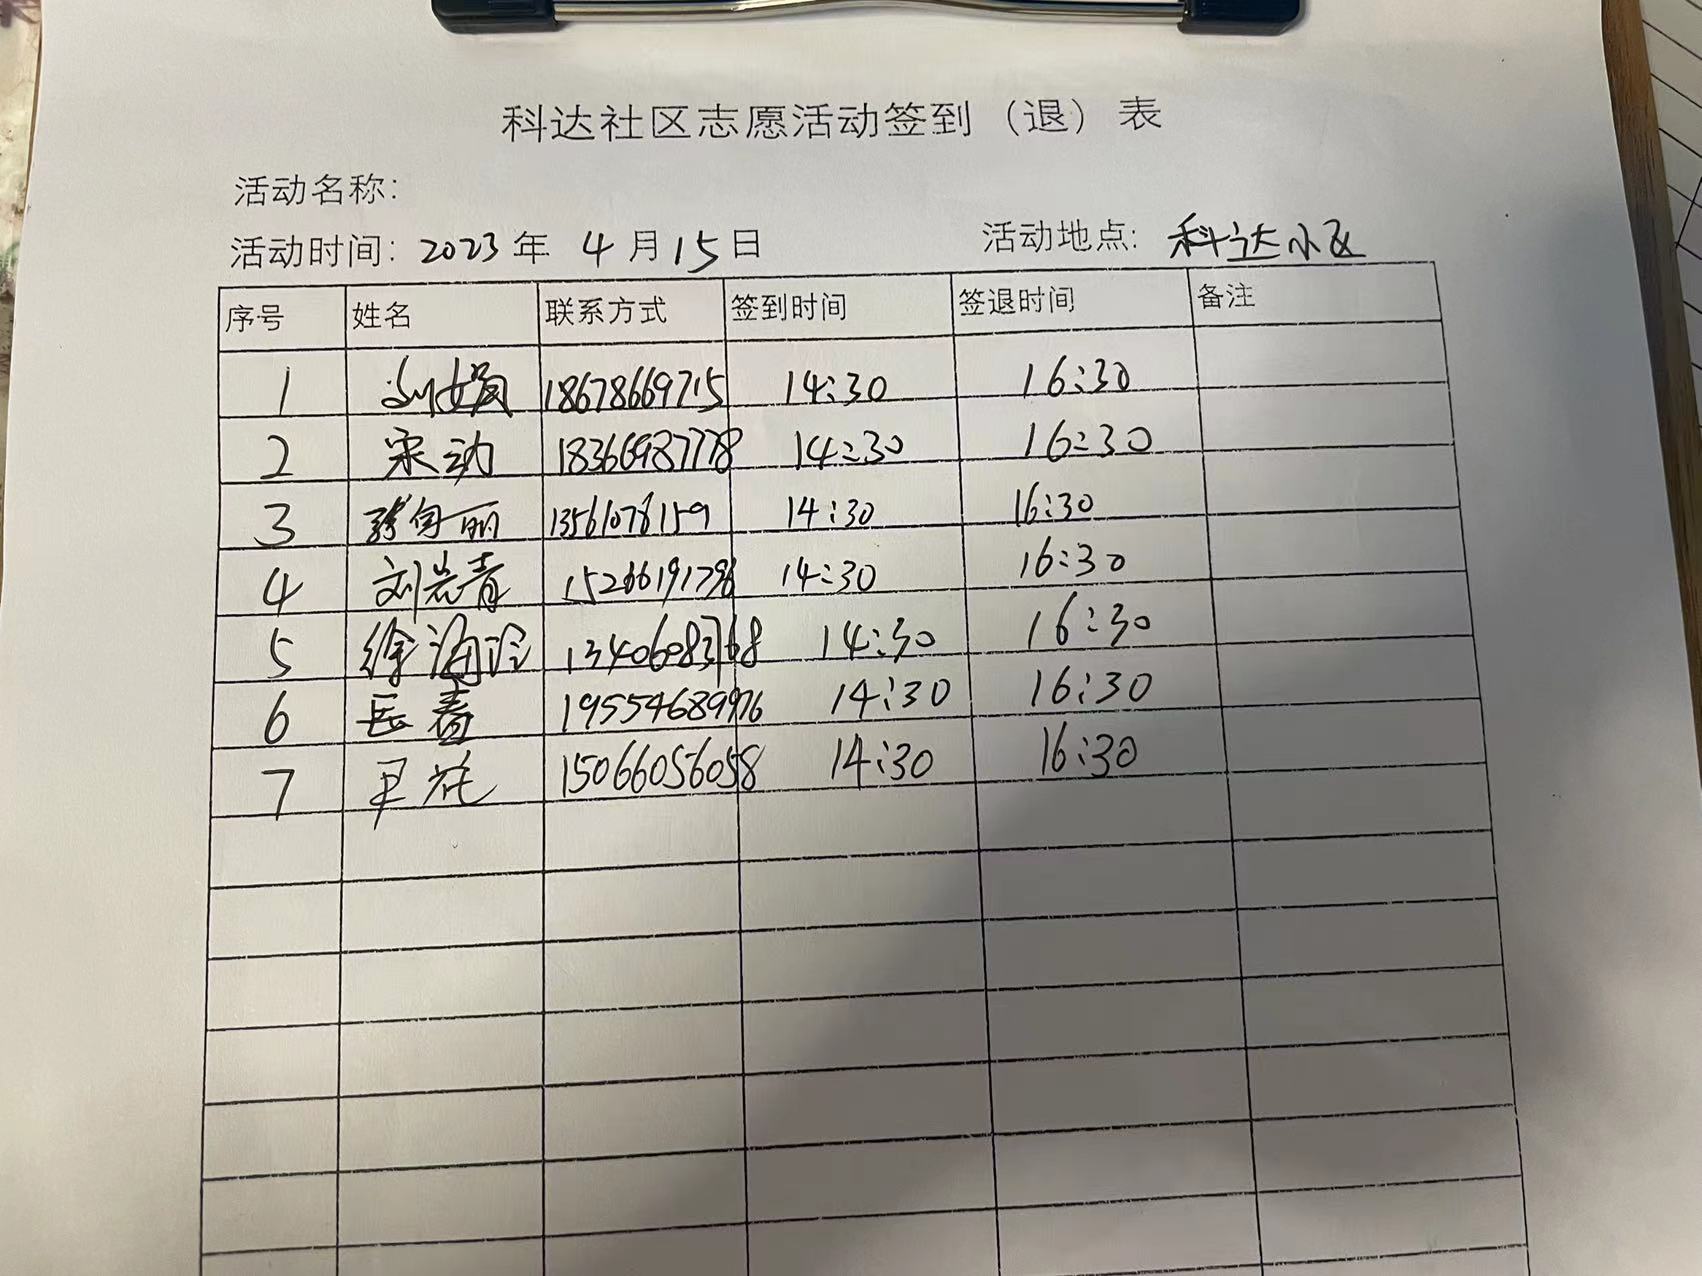 科达社区志愿活动签到（退）表
活动名称：
活动时间：2023年 4月15日 活动地点：科达小区
序号 姓名 联系方式 签到时间 签退时间 备注
1 刘娟 18678669715 14:30 16:30
2 宋动 18366987778 14:30 16:30
3 丽 13561078159 14:30 16:30
4 刘岩青 15266191796 14:30 16:30
5 徐海 13406083768 14:30 16:30
6 春 19554689976 14:30 16:30
7 15066056058 14:30 16:30